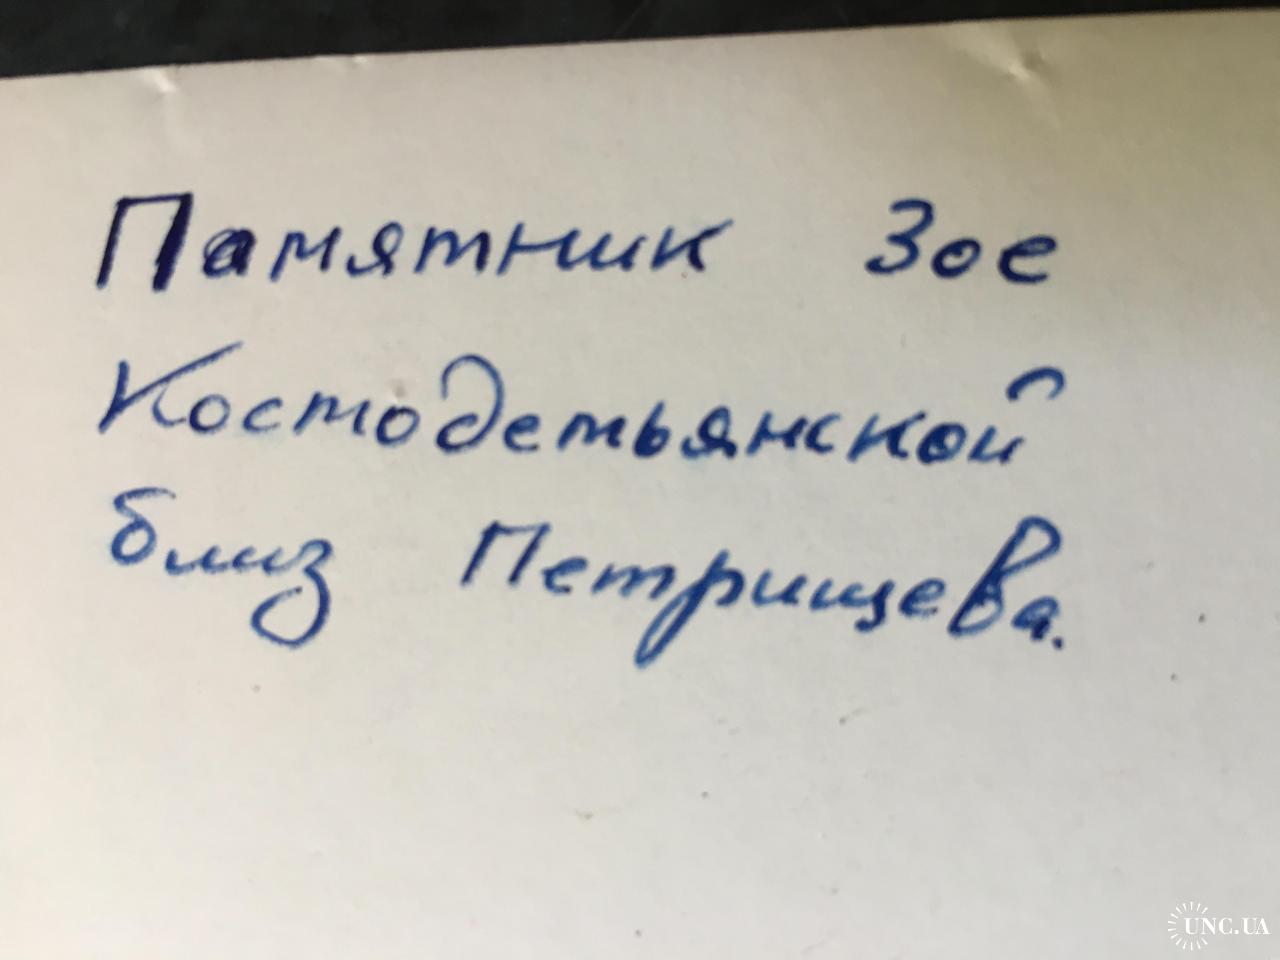 Памятник Зое
Костодетьянской
близ Петрищева.
UNC.UA